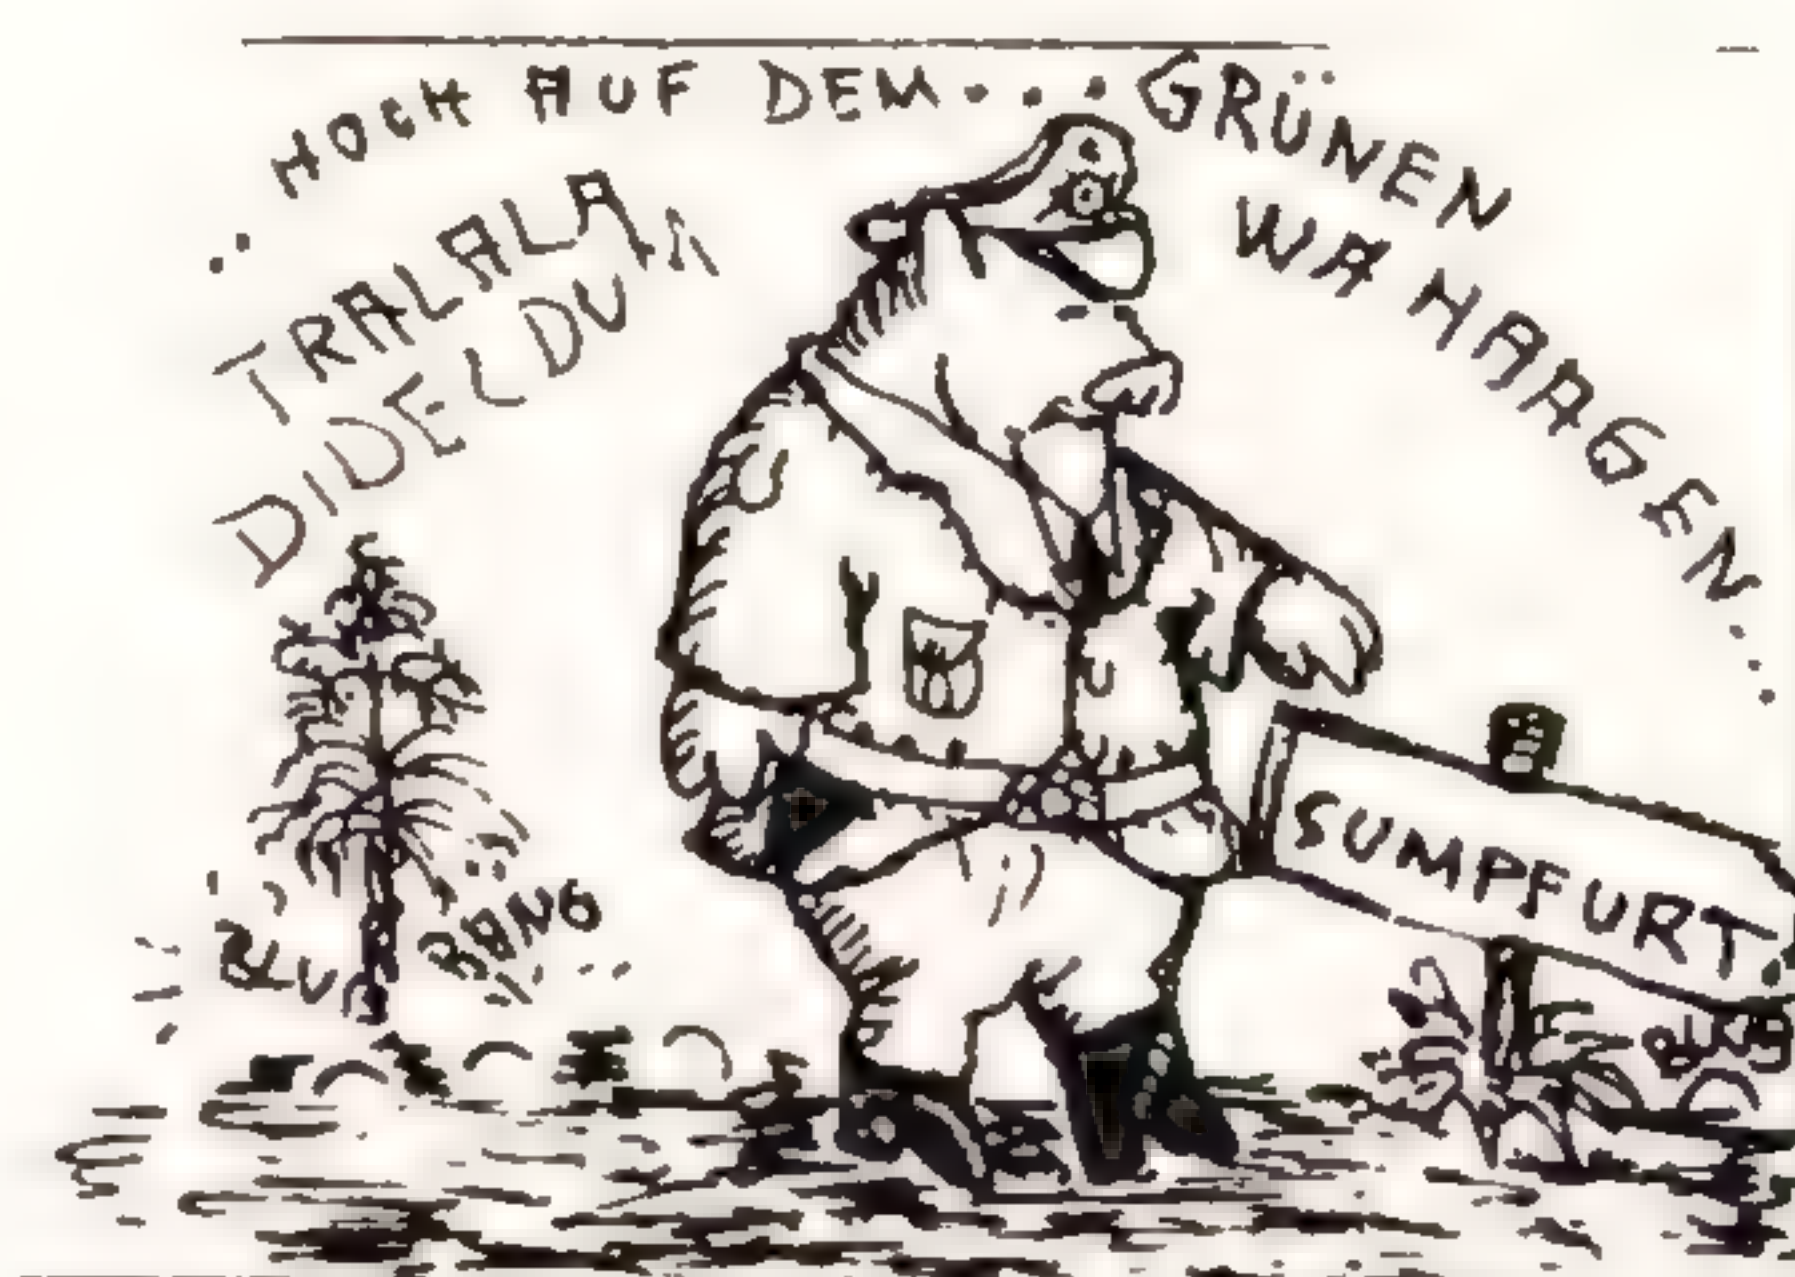 .. HOCH AUF DEM... GRÜNEN
WA HAAGEN...
TRALALA
DIDELDUM
SUMPFURT!